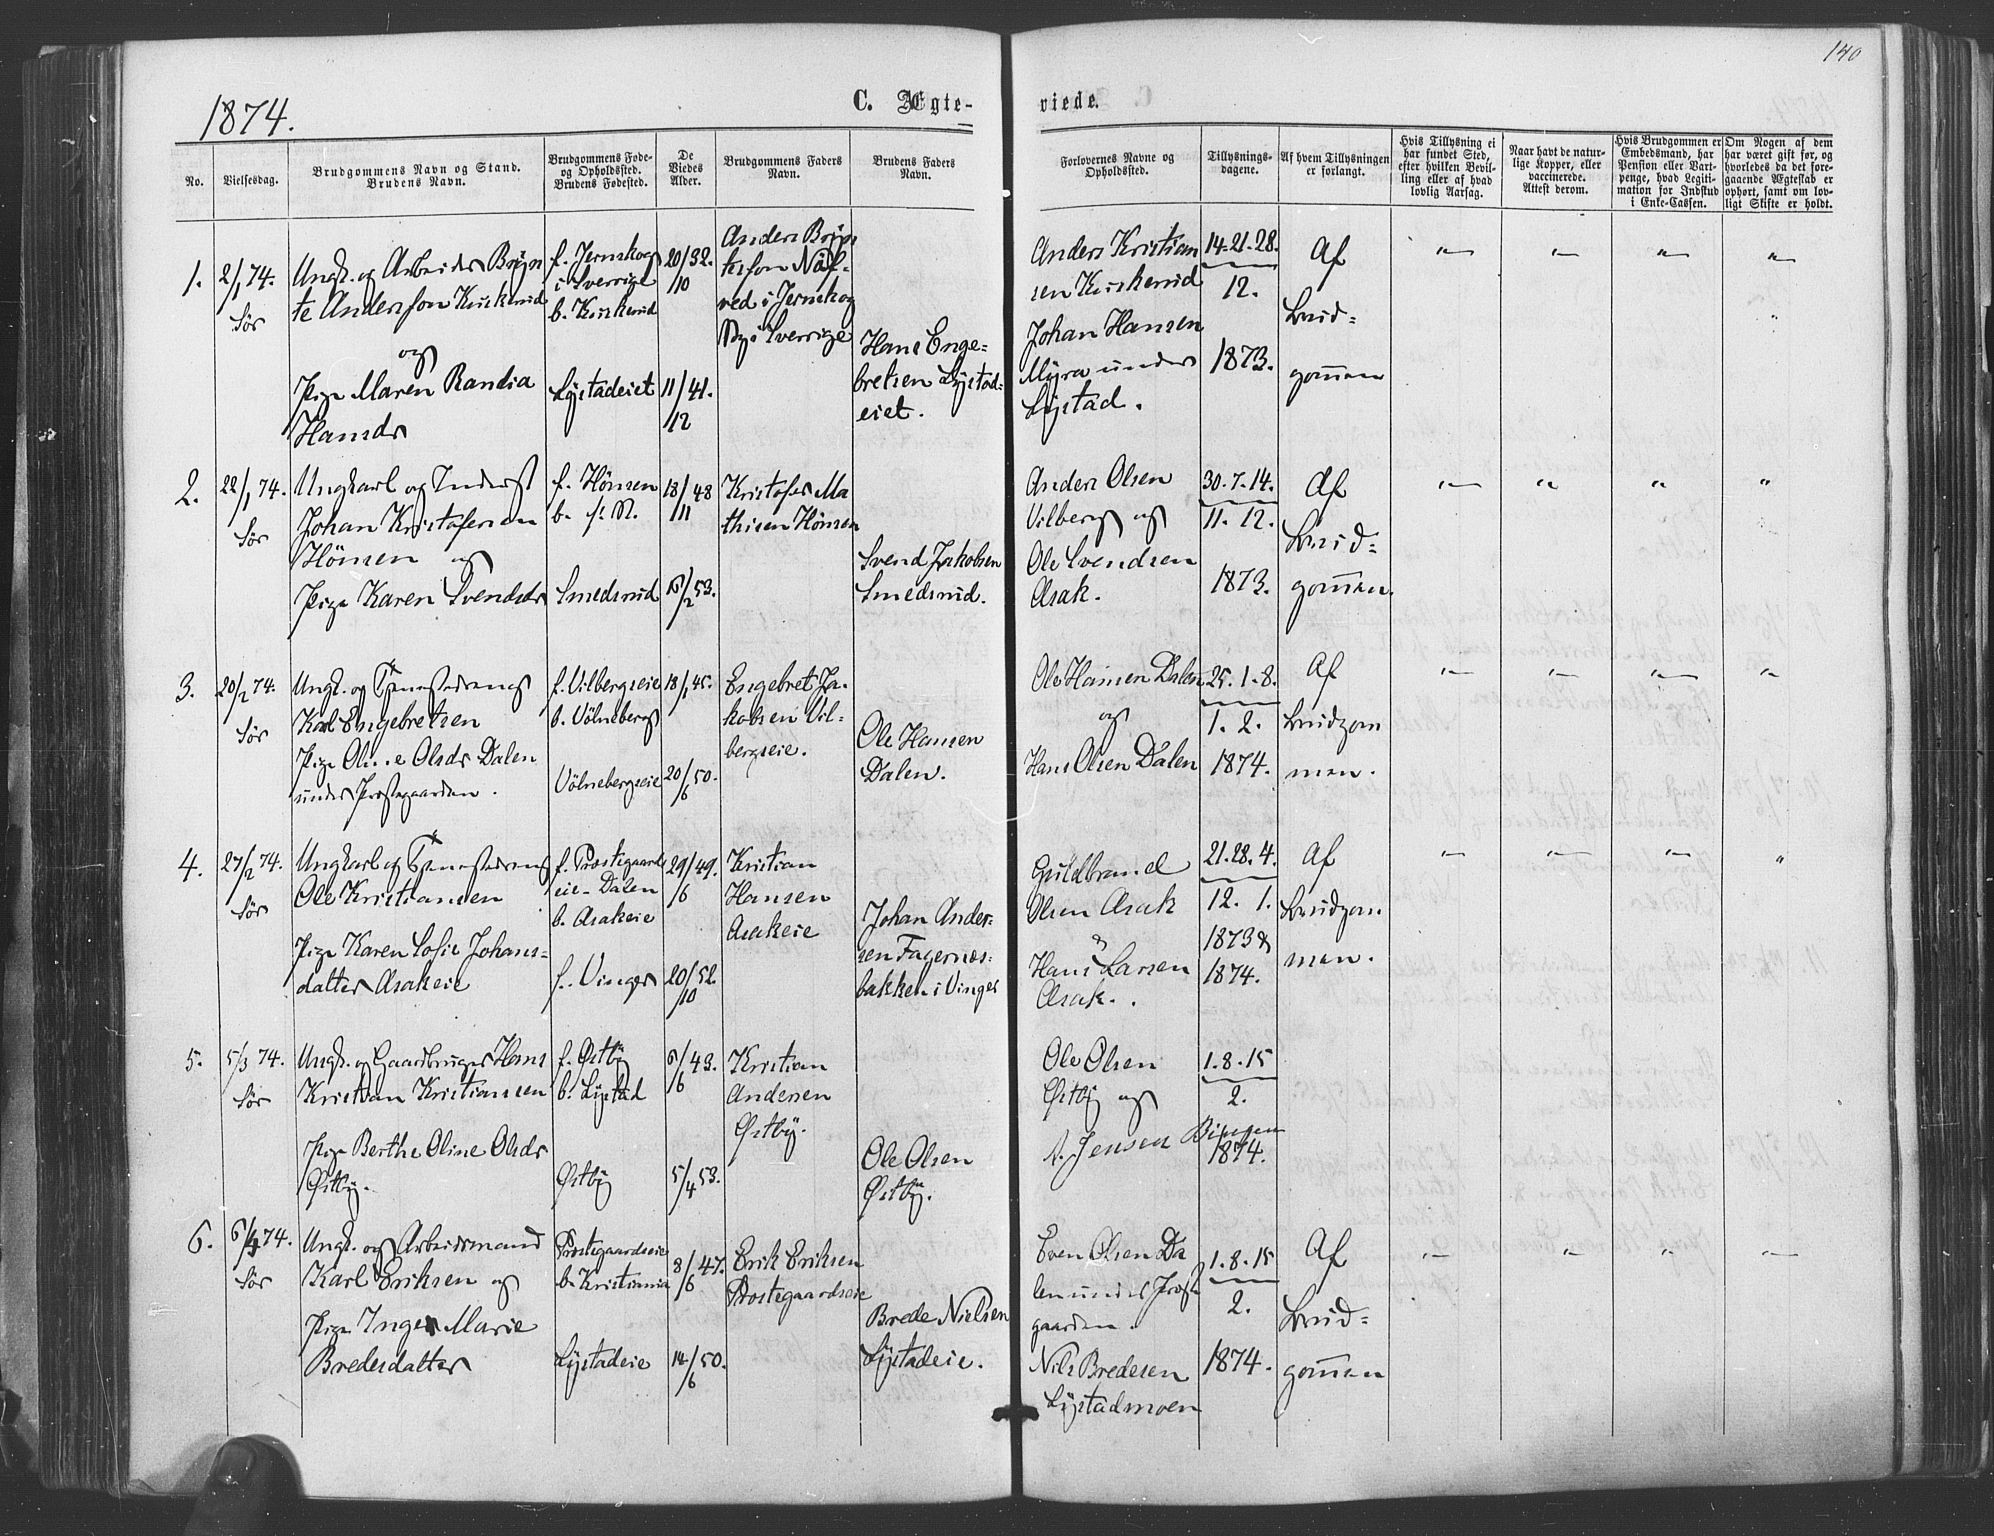 140
1874.
C. Ægte-
viede.
No.
Vielsesdag.
Brudgommens Navn og Stand.
Brudens Navn.
Brudgommens Føde-
og Opholdssted.
Brudens Fødested.
De
Viedes
Alder.
Brudgommens Faders
Navn.
Brudens Faders
Navn.
Forlovernes Navne og
Opholdssted.
Tillysnings-
dagene.
Af hvem Tillysningen
er forlangt.
Hvis Tillysning ei
har fundet Sted,
efter hvilken Bevil-
ling eller af hvad
lovlig Aarsag.
Naar havt de natur-
lige Kopper, eller
vaccinerede.
Attest derom.
Hvis Brudgommen er
Embedsmand, har
Pension eller Vart-
penge, hvad Legiti-
mation for Indskud
i Enke-Cassen.
Om Nogen af dem
har været gift før, og
hvorledes da det fore-
gaaende Ægteskab er
ophørt, samt om lov-
ligt Skifte er holdt.
1.
2/1 74.
Sør
Ungk. og Arbeider Bryn
te Andersson Kuskerud
og
Pige Maren Randia
Hansdr
f. Jernskog
i Sverrige
b. Kuskerud
Lystadeiet
20/10 32.
11/12 41.
Anders Bryn
tesson
ved i Jernskog
i Sverrige
Hans Enge-
bretsen Lystad-
eiet.
Anders Kristian
sen Kuskerud
Johan Hansen
Myra under
Lystad.
14-21-28.
12.
1873.
Af
Brud-
gommen
2.
22/1 74.
Sør
Ungkarl og Inderst
Johan Kristofersen
Hönsen og
Pige Karen Svendsdr
f. Hönsen
b. s. St.
Smedsrud
18/11 48
/2 53.
Kristofer Ma
thisen Hönsen
Svend Jakobsen
Smedsrud.
Anders Olsen
Vilberg og
Ole Svendsen
Asak.
30. 7. 14.
11. 12.
1873.
Af
Brud-
gommen.
3.
20/2 74.
Sør
Ungk. og Tjenestedreng
Karl Engebretsen
Pige Oline Olsdr Dalen
under Prestegaarden.
f. Vilbergseie
b. Völneberg
Völnebergseie
18/1 45.
20/6 50.
Engebret Ja-
kobsen Vil-
bergseie.
Ole Hansen
Dalen.
Ole Hansen Dalen
og
Hans Olsen Dalen
25. 1. 8.
1. 2.
1874.
Af
Brudgom
men.
4.
27/2 74.
Sør
Ungkarl og Tjenestedreng
Ole Kristiansen
Pige Karen Sofie Johans-
datter Asakeie
f. Prestegaard
eie-Dalen
b. Asakeie
f. Vinger
29/6 49.
20/10 52.
Kristian
Hansen
Asakeie
Johan Ander-
sen Fagernes-
bakken i Vinger
Guldbrand
Olsen Asak
&
Hans Larsen
Asak.
21. 28. 4.
12. 1.
1873 &
1874.
Af
Brudgom
men.
5.
5/3 74.
Sør
Ungk. og Gaardbruger Hans
Kristian Kristiansen
Pige Berthe Oline Olsdr
Østby.
f. Østby
b. Lystad
Østby
6/6 43.
5/4 53.
Kristian
Andersen
Østby.
Ole Olsen
Østby.
Ole Olsen
Østby og
A. Jensen Bingen
1. 8. 15
2.
1874.
6.
6/3 74.
Sør
Ungk. og Arbeidsmand
Karl Eriksen og
Pige Inger Marie
Bredesdatter
Prestegaardseie
b. Kristiania
Lystadeie
8/6 47.
14/6 50.
Erik Eriksen
Prestegaardseie
Brede Nielsen
Lystadeie.
Even Olsen Da
len under Prest
gaarden.
Nils Bredesen
Lystadmoen
1. 8. 15
2.
1874.
Af
Brud-
gommen